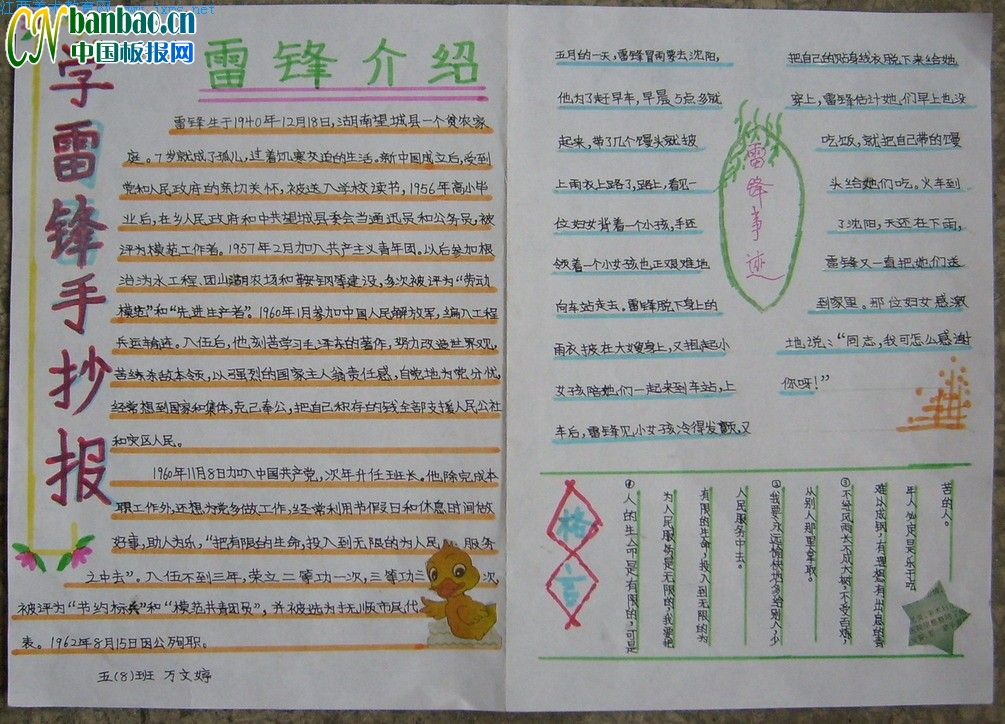 CN banbao.cn
中国板报网
学雷锋手抄报
雷锋介绍
雷锋生于1940年12月18日,湖南望城县一个贫农家
庭。7岁就成了孤儿,过着饥寒交迫的生活。新中国成立后,受到
党和人民政府的亲切关怀,被送入学校读书,1956年高小毕
业后,在乡人民政府和中共望城县委会当通迅员和公务员,被
评为模范工作者。1957年2月加入共产主义青年团。以后参加根
治沩水工程、团山湖农场和鞍钢等建设,多次被评为“劳动
模范”和“先进生产者”。1960年1月参加中国人民解放军,编入工程
兵运输连。入伍后,他刻苦学习毛泽东的著作,努力改造世界观,
苦练杀敌本领,以强烈的国家主人翁责任感,自觉地为党分忧,
经常想到国家和集体,克己奉公,把自己积存的钱全部支援人民公社
和灾区人民。
1960年11月8日加入中国共产党,次年升任班长。他除完成本
职工作外,还想为党多做工作,经常利用节假日和休息时间做
好事,助人为乐,“把有限的生命,投入到无限的为人民 服务
之中去”。入伍不到三年,荣立二等功一次,三等功三 次,
被评为“节约标兵”和“模范共青团员”,并被选为抚顺市民代
表。1962年8月15日因公殉职。
五(8)班 万文婷
雷锋事迹
五月的一天,雷锋冒雨要去沈阳,
他为了赶早车,早晨5点多就
起来,带了几个馒头就披
上雨衣上路了,路上,看见一
位妇女背着一个小孩,手还
领着一个小女孩也正艰难地
向车站走去。雷锋脱下身上的
雨衣披在大嫂身上,又抱起小
女孩陪她们一起来到车站,上
车后,雷锋见小女孩冷得发颤,又
把自己的贴身线衣脱下来给她
穿上,雷锋估计她们早上也没
吃饭,就把自己带的馒
头给她们吃。火车到
了沈阳,天还在下雨,
雷锋又一直把她们送
到家里。那位妇女感激
地说:“同志,我可怎么感谢
你呀!”
格言
①人的生命是有限的,可是
为人民服务是无限的,我要把
有限的生命,投入到无限的为
人民服务中去。
②我要永远愉快地多给别人,少
从别人那里拿取。
③不经风雨,长不成大树,不受百炼,
难以成钢,有理想有出息的青
年人必定是乐于吃
苦的人。